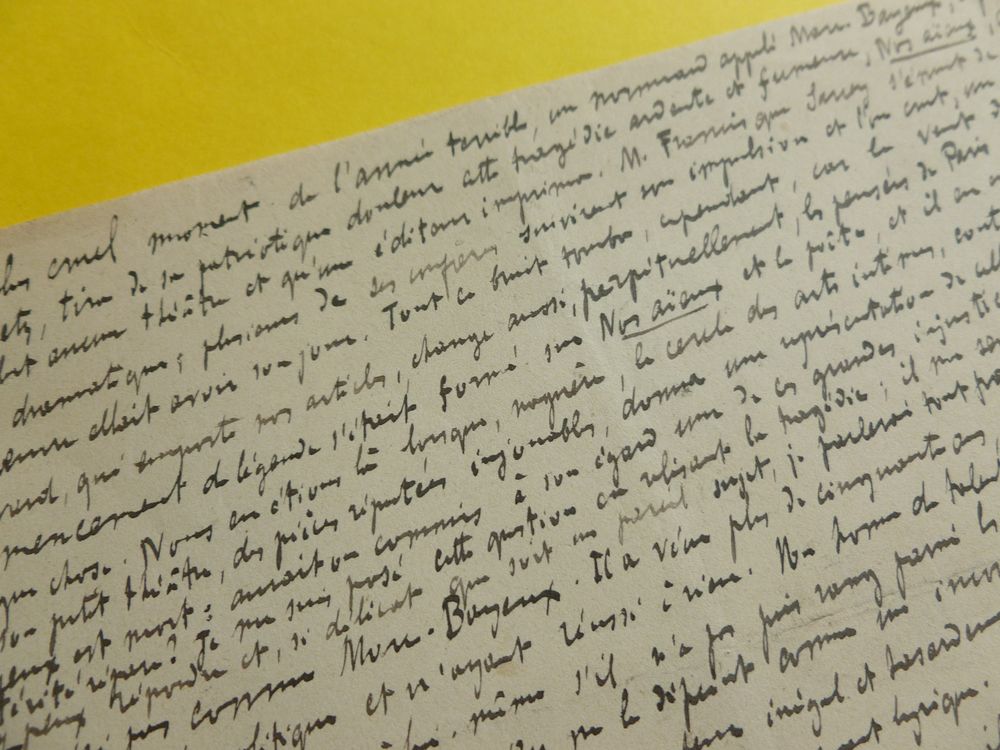 cruel moment de l'année terrible, un normand appelé Marc-Bayeux,
tira de sa patriotique douleur cette tragédie ardente et fumeuse, Nos aïeux
aucun théâtre et qu'un éditeur imprima. M. Francisque Sarcey s'éprit de
dramatique; plusieurs de ses confrères suivirent son impulsion et l'on crut, un
allait avoir son jour. Tout ce bruit tomba, cependant, car le vent
qui emporte nos articles, change aussi, perpétuellement, les pensées de Paris
de légende s'était formé sur Nos aïeux et le poète, et il en
chose. Nous en étions là lorsque, naguère, le cercle des arts intimes,
son petit théâtre, des pièces réputées injouables, donna une représentation de
est mort: aurait-on commis à son égard une de ces grandes
? Je me suis posé cette question en relisant la tragédie; il me
répondre et, si délicat que soit un pareil sujet, je parlerai tout
pas comme Marc-Bayeux. Il a vécu plus de cinquante ans
et n'ayant réussi à rien. Un homme de
même s'il n'a pas pris rang parmi les
le dépeint comme un
inégal et
lyrique.